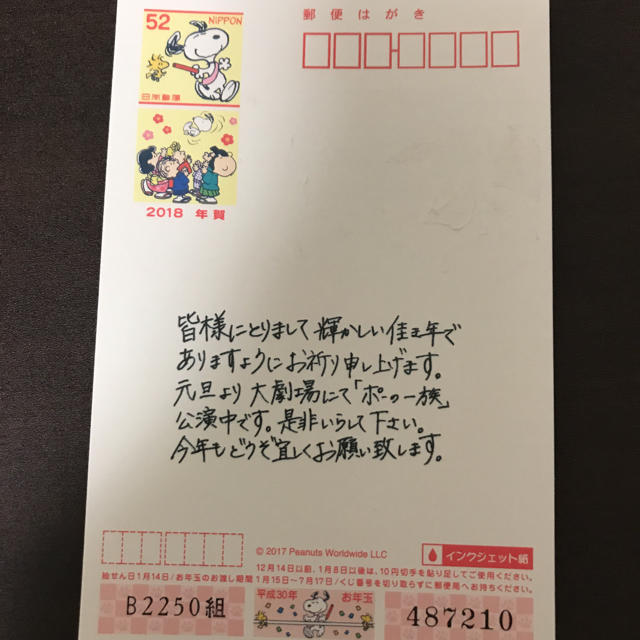 郵便はがき
52 NIPPON
日本郵便
2018 年賀
皆様にとりまして輝かしい佳き年で
ありますようにお祈り申し上げます。
元旦より大劇場にて「ポーの一族」
公演中です。是非いらして下さい。
今年もどうぞ宜しくお願い致します。
© 2017 Peanuts Worldwide LLC
インクジェット紙
12月14日以前、1月8日以後は、10円切手を貼り足してご使用ください。
抽せん日1月14日/お年玉のお渡し期間1月15日~7月17日/くじ番号を切り取らずに郵便局へお持ちください。
B2250組
平成30年
お年玉
487210